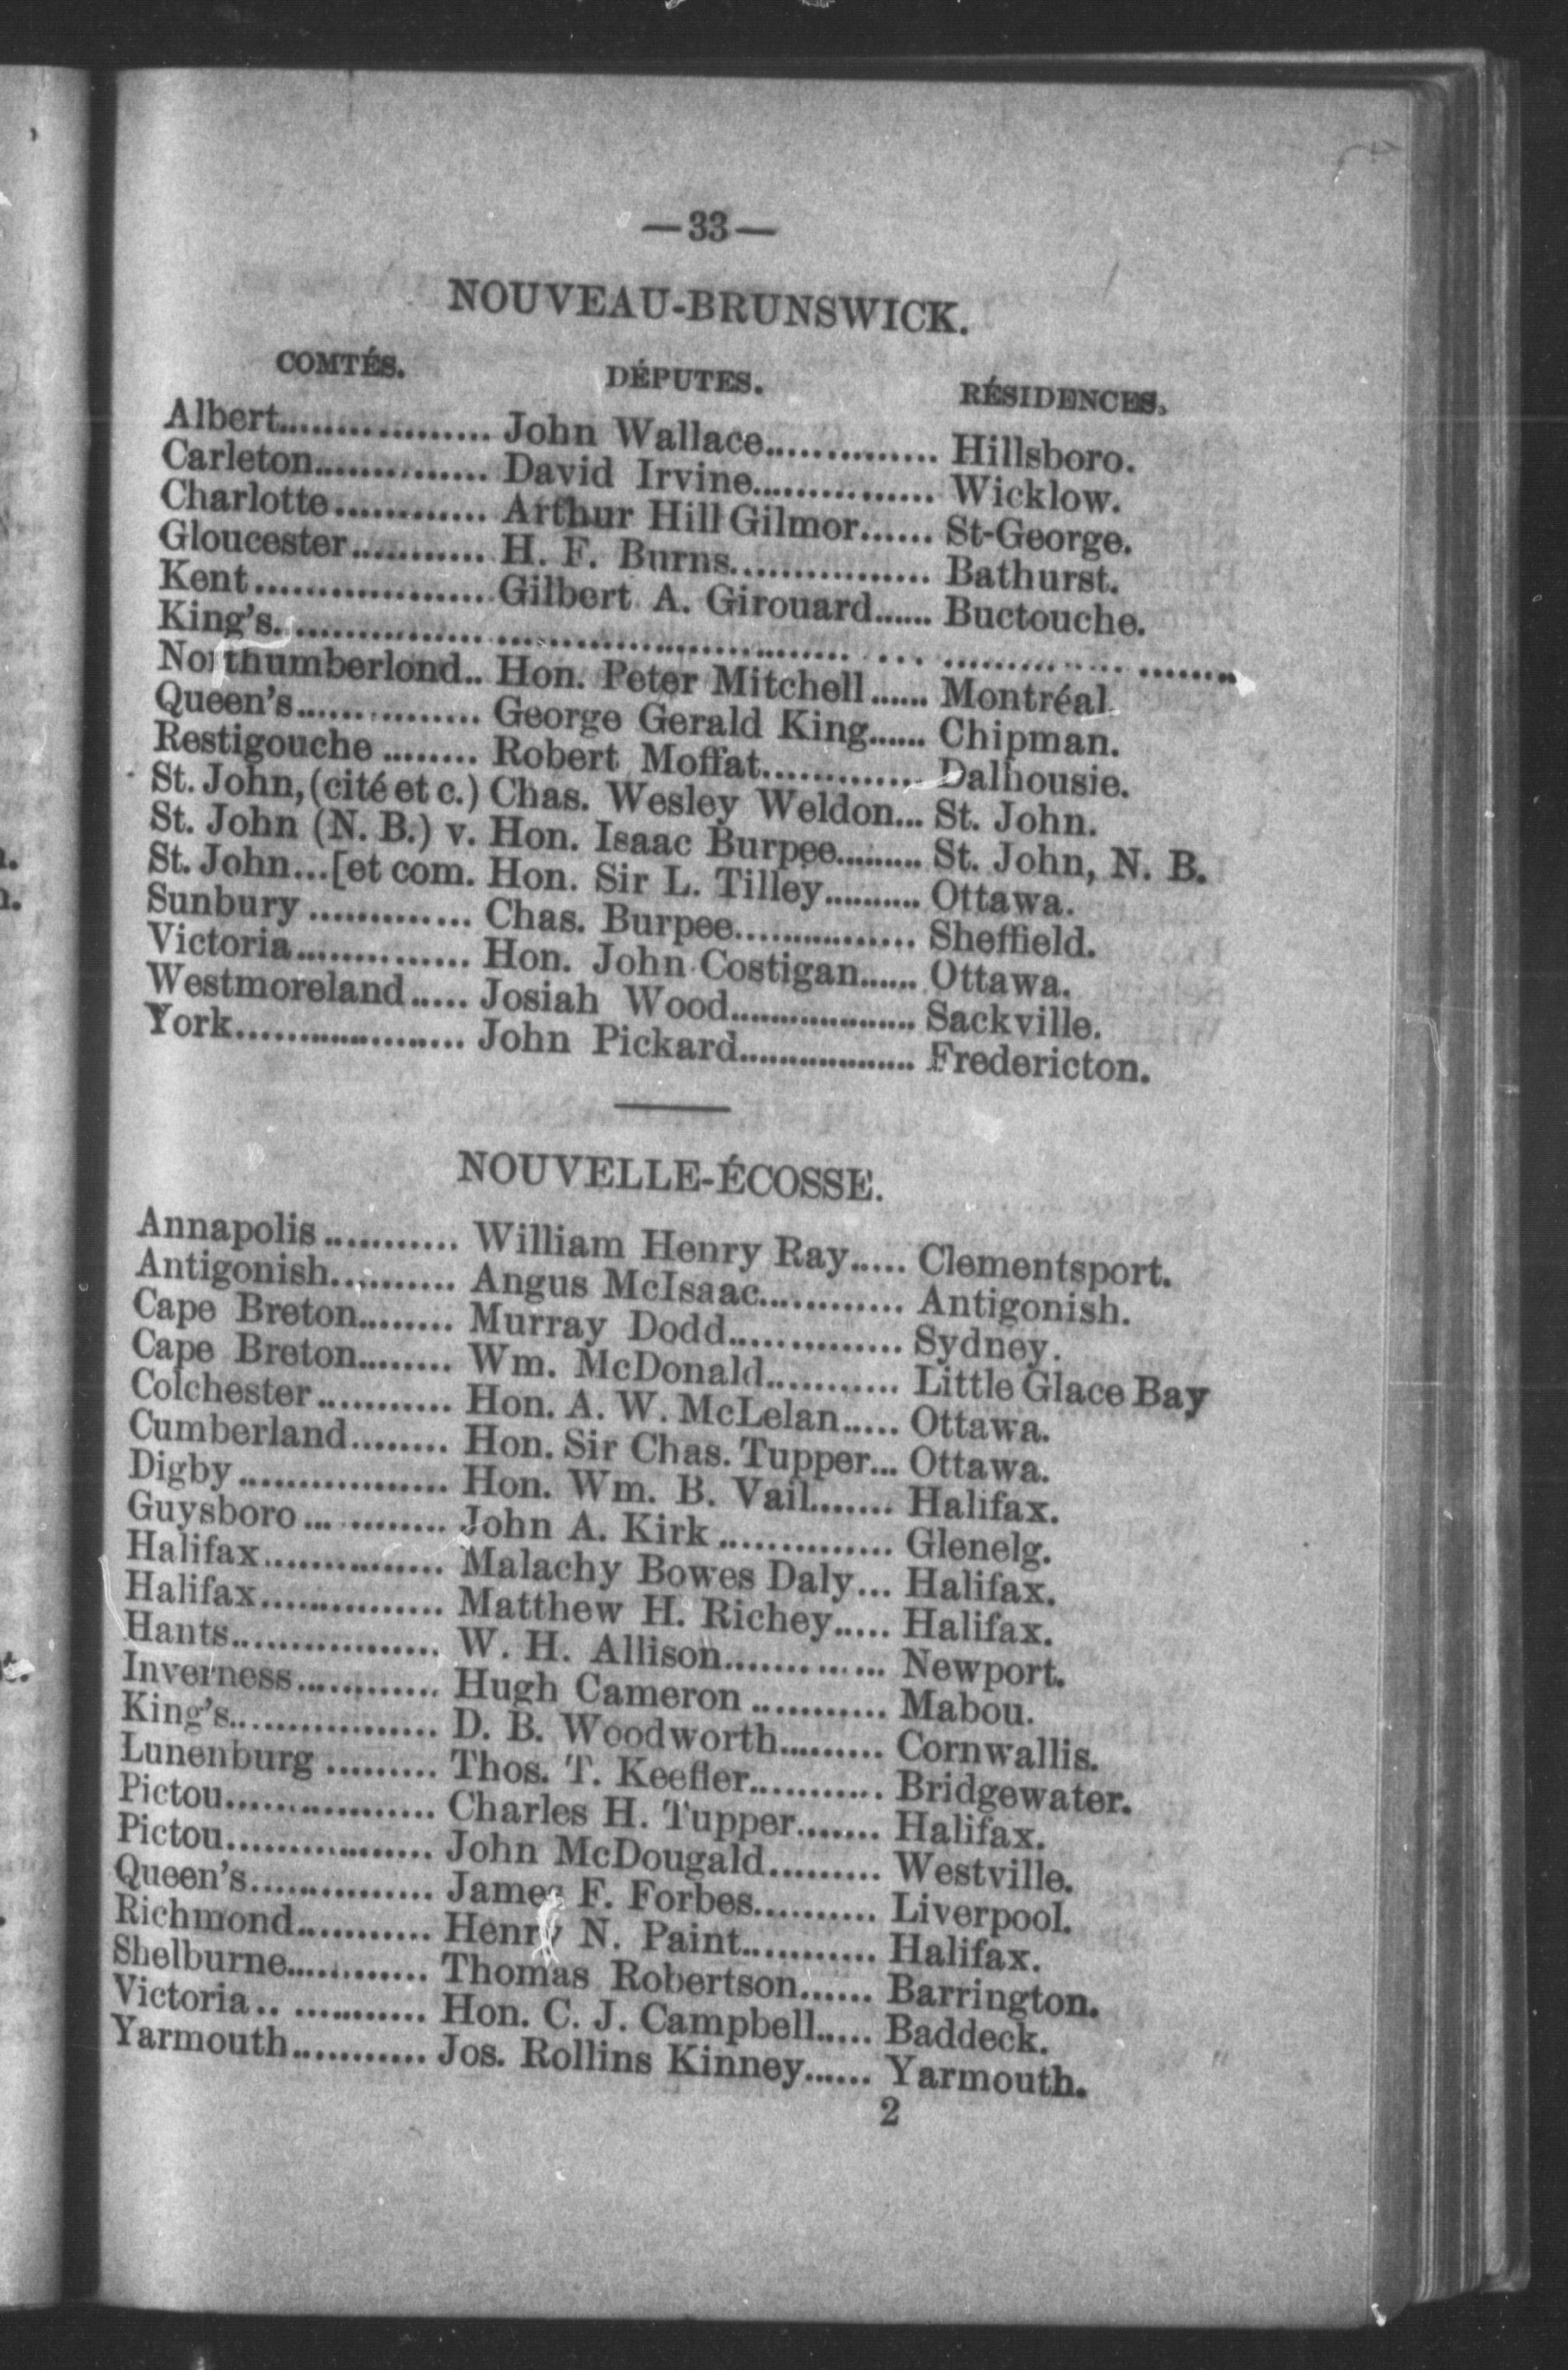 —33—
NOUVEAU-BRUNSWICK.
COMTÉS. DÉPUTES. RÉSIDENCES.
Albert.................. John Wallace............... Hillsboro.
Carleton............... David Irvine................ Wicklow.
Charlotte............. Arthur Hill Gilmor...... St-George.
Gloucester............ H. F. Burns................. Bathurst.
Kent.................... Gilbert A. Girouard...... Buctouche.
King's.................. .............................. ... ........................
Northumberlond.. Hon. Peter Mitchell...... Montréal
Queen's................ George Gerald King...... Chipman.
Restigouche ........ Robert Moffat.............. Dalhousie.
St. John, (cité et c.) Chas. Wesley Weldon... St. John.
St. John (N. B.) v. Hon. Isaac Burpee......... St. John, N. B.
St. John...[et com. Hon. Sir L. Tilley.......... Ottawa.
Sunbury .............. Chas. Burpee................ Sheffield.
Victoria............... Hon. John Costigan...... Ottawa.
Westmoreland..... Josiah Wood................... Sackville.
York.................... John Pickard.................. Fredericton.
NOUVELLE-ÉCOSSE.
Annapolis ............ William Henry Ray..... Clementsport.
Antigonish........... Angus McIsaac............. Antigonish.
Cape Breton......... Murray Dodd............... Sydney.
Cape Breton......... Wm. McDonald............ Little Glace Bay
Colchester ............ Hon. A. W. McLelan..... Ottawa.
Cumberland......... Hon. Sir Chas. Tupper... Ottawa.
Digby .................. Hon. Wm. B. Vail....... Halifax.
Guysboro ... ......... John A. Kirk ............... Glenelg.
Halifax................ Malachy Bowes Daly... Halifax.
Halifax................ Matthew H. Richey..... Halifax.
Hants.................. W. H. Allison.............. Newport.
Inverness............. Hugh Cameron ............ Mabou.
King's.................. D. B. Woodworth......... Cornwallis.
Lunenburg .......... Thos. T. Keefler............ Bridgewater.
Pictou.................. Charles H. Tupper....... Halifax.
Pictou.................. John McDougald.......... Westville.
Queen's................ James F. Forbes........... Liverpool.
Richmond............ Henry N. Paint............ Halifax.
Shelburne............. Thomas Robertson...... Barrington.
Victoria.. ............ Hon. C. J. Campbell..... Baddeck.
Yarmouth............ Jos. Rollins Kinney...... Yarmouth.
2